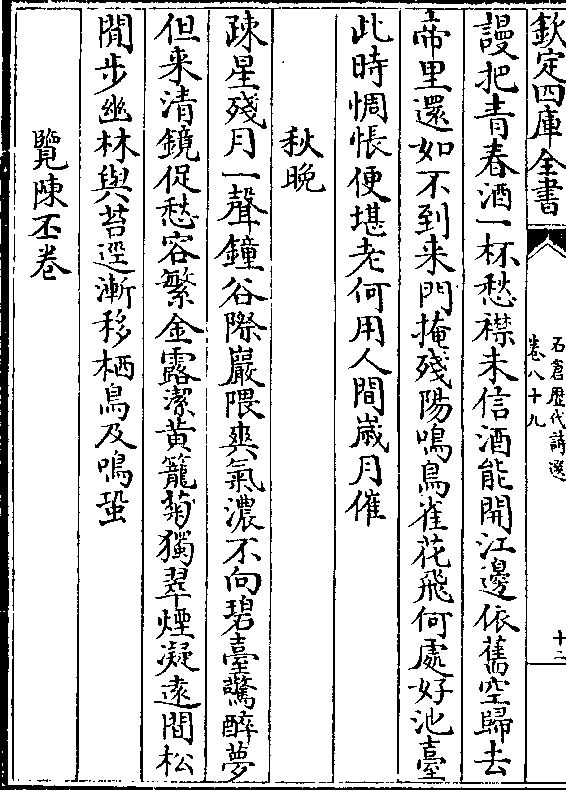 欽定四庫全書
石倉歷代詩選
卷八十九
十二
謾把青春酒一杯愁襟未信酒能開江邊依舊空歸去
帝里還如不到来門掩殘陽鳴鳥雀花飛何處好池臺
此時惆悵便堪老何用人間嵗月催
秋晚
疎星殘月一聲鐘谷際巖隈爽氣濃不向碧臺驚醉夢
但来清鏡促愁容繁金露潔黄籠菊獨翠煙凝遠閒松
閒步幽林與苔逕漸移栖鳥及鳴蛩
覽陳丕卷